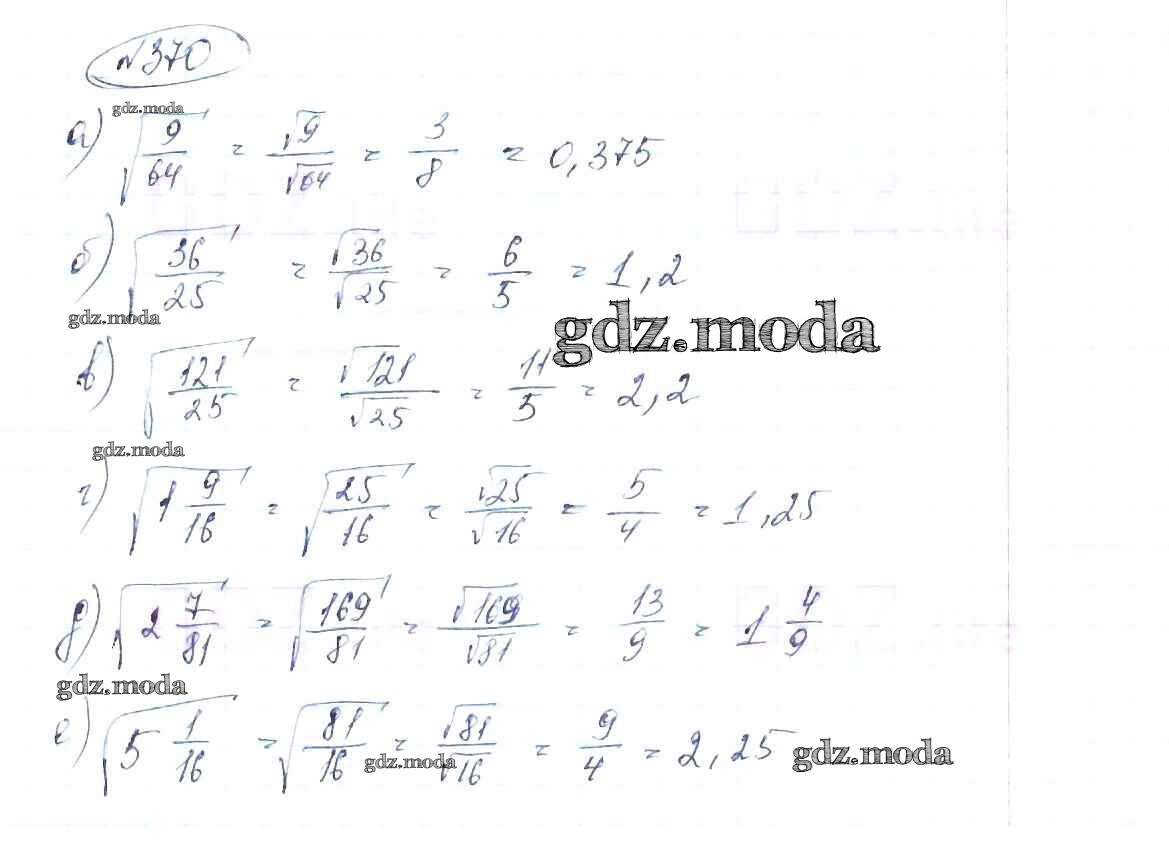 №370
gdz.moda
а) √(9/64) = √9/√64 = 3/8 = 0,375
б) √(36/25) = √36/√25 = 6/5 = 1,2
gdz.moda
gdz.moda
в) √(121/25) = √121/√25 = 11/5 = 2,2
gdz.moda
г) √(1 9/16) = √(25/16) = √25/√16 = 5/4 = 1,25
д) √(2 7/81) = √(169/81) = √169/√81 = 13/9 = 1 4/9
gdz.moda
е) √(5 1/16) = √(81/16) = √81/√16 = 9/4 = 2,25
gdz.moda
gdz.moda